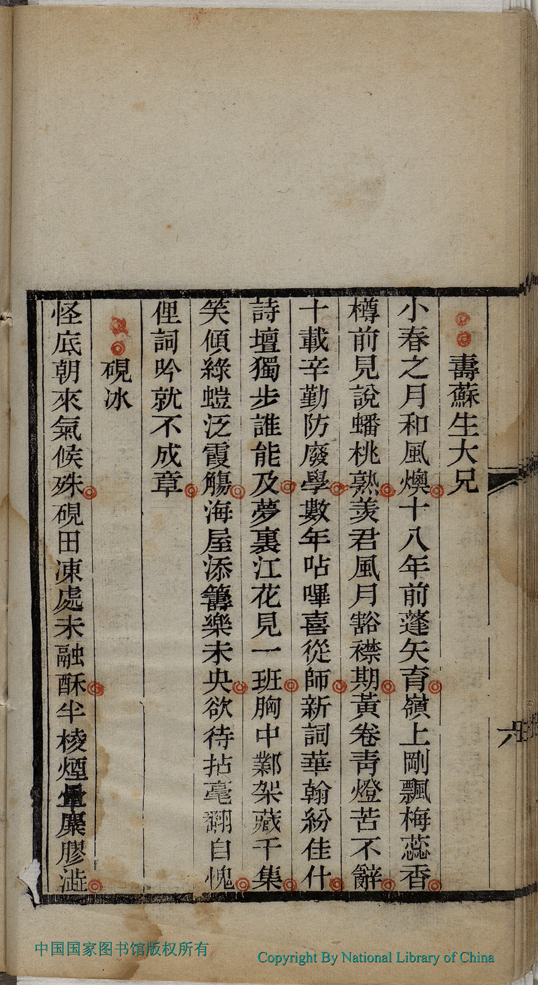 壽蘇生大兄
小春之月和風燠十八年前蓬矢育嶺上剛飄梅蕊香
樽前見說蟠桃熟羨君風月豁襟期黃卷靑燈苦不辭
十載辛勤防廢學數年呫嗶喜從師新詞華翰紛佳什
詩壇獨步誰能及夢裏江花見一班胸中鄴架藏千集
笑傾綠螘泛霞觴海屋添籌樂未央欲待拈毫翻自愧
俚詞吟就不成章
硯冰
怪底朝來氣候殊硯田凍處未融酥半棱煙暈麋膠澁
六
中国国家图书馆版权所有
Copyright By National Library of China